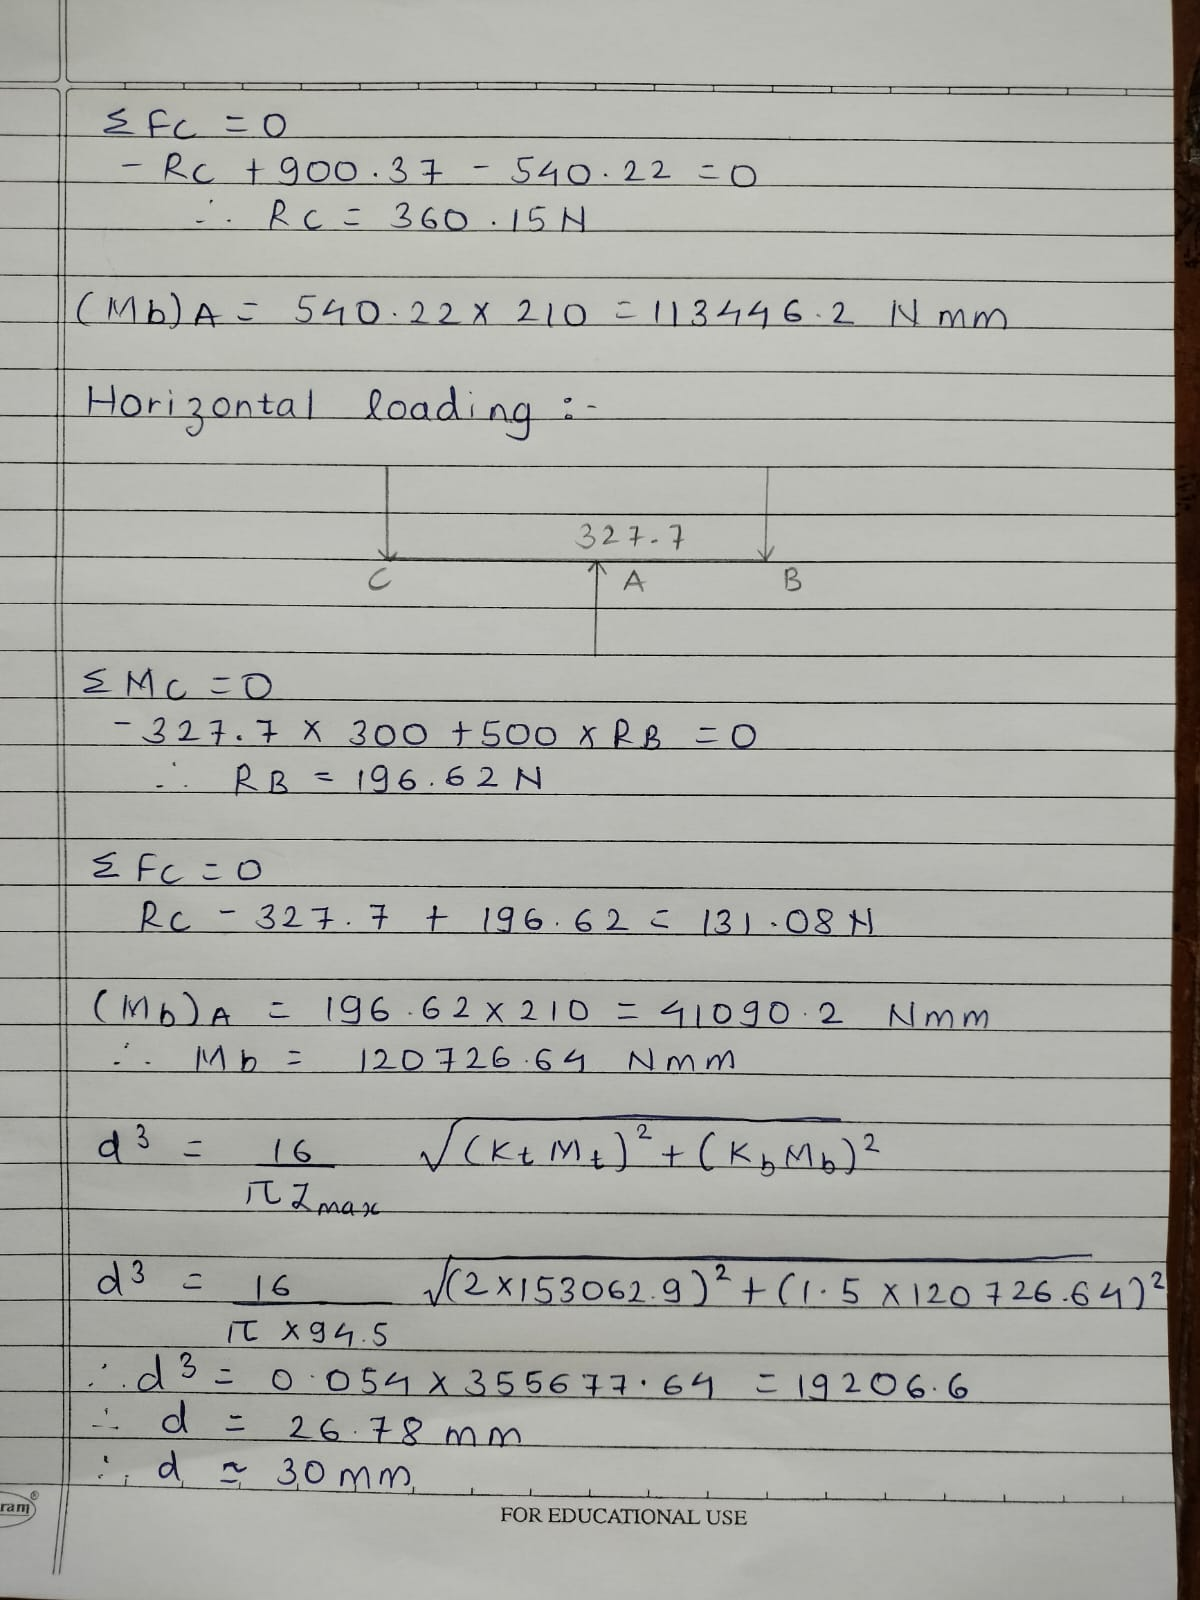 Σ Fc = 0
- Rc + 900.37 - 540.22 = 0
∴ Rc = 360.15 N
(Mb)A = 540.22 x 210 = 113446.2 N mm
Horizontal loading :-
327.7
C A B
Σ Mc = 0
- 327.7 x 300 + 500 x RB = 0
∴ RB = 196.62 N
Σ Fc = 0
Rc - 327.7 + 196.62 = 131.08 N
(Mb)A = 196.62 x 210 = 41090.2 Nmm
∴ Mb = 120726.64 Nmm
d³ = 16/(π τmax) √(Kt Mt)² + (Kb Mb)²
d³ = 16/(π x 94.5) √(2 x 153062.9)² + (1.5 x 120726.64)²
∴ d³ = 0.054 x 355677.64 = 19206.6
∴ d = 26.78 mm
∴ d ≃ 30 mm
ram®
FOR EDUCATIONAL USE